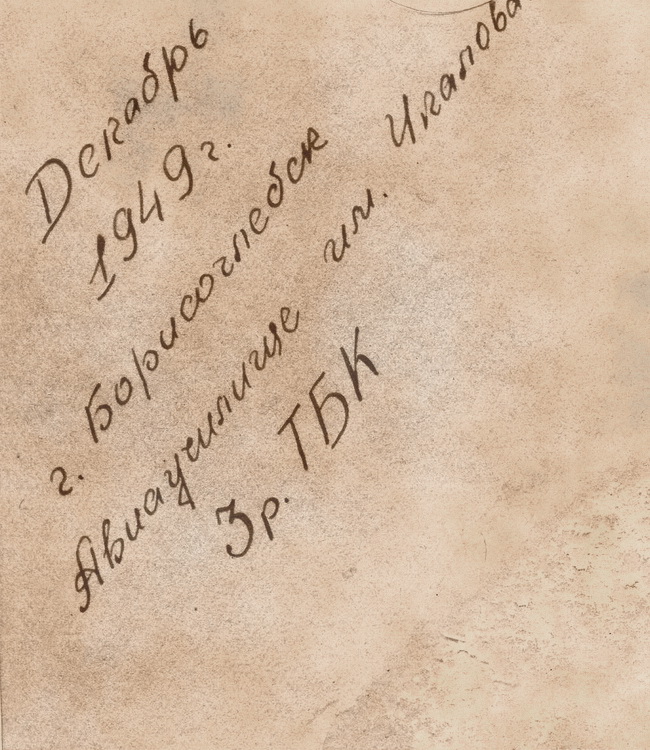 Декабрь
1949 г.
г. Борисоглебск
Авиаучилище им. Чкалова
3 р. ТБК